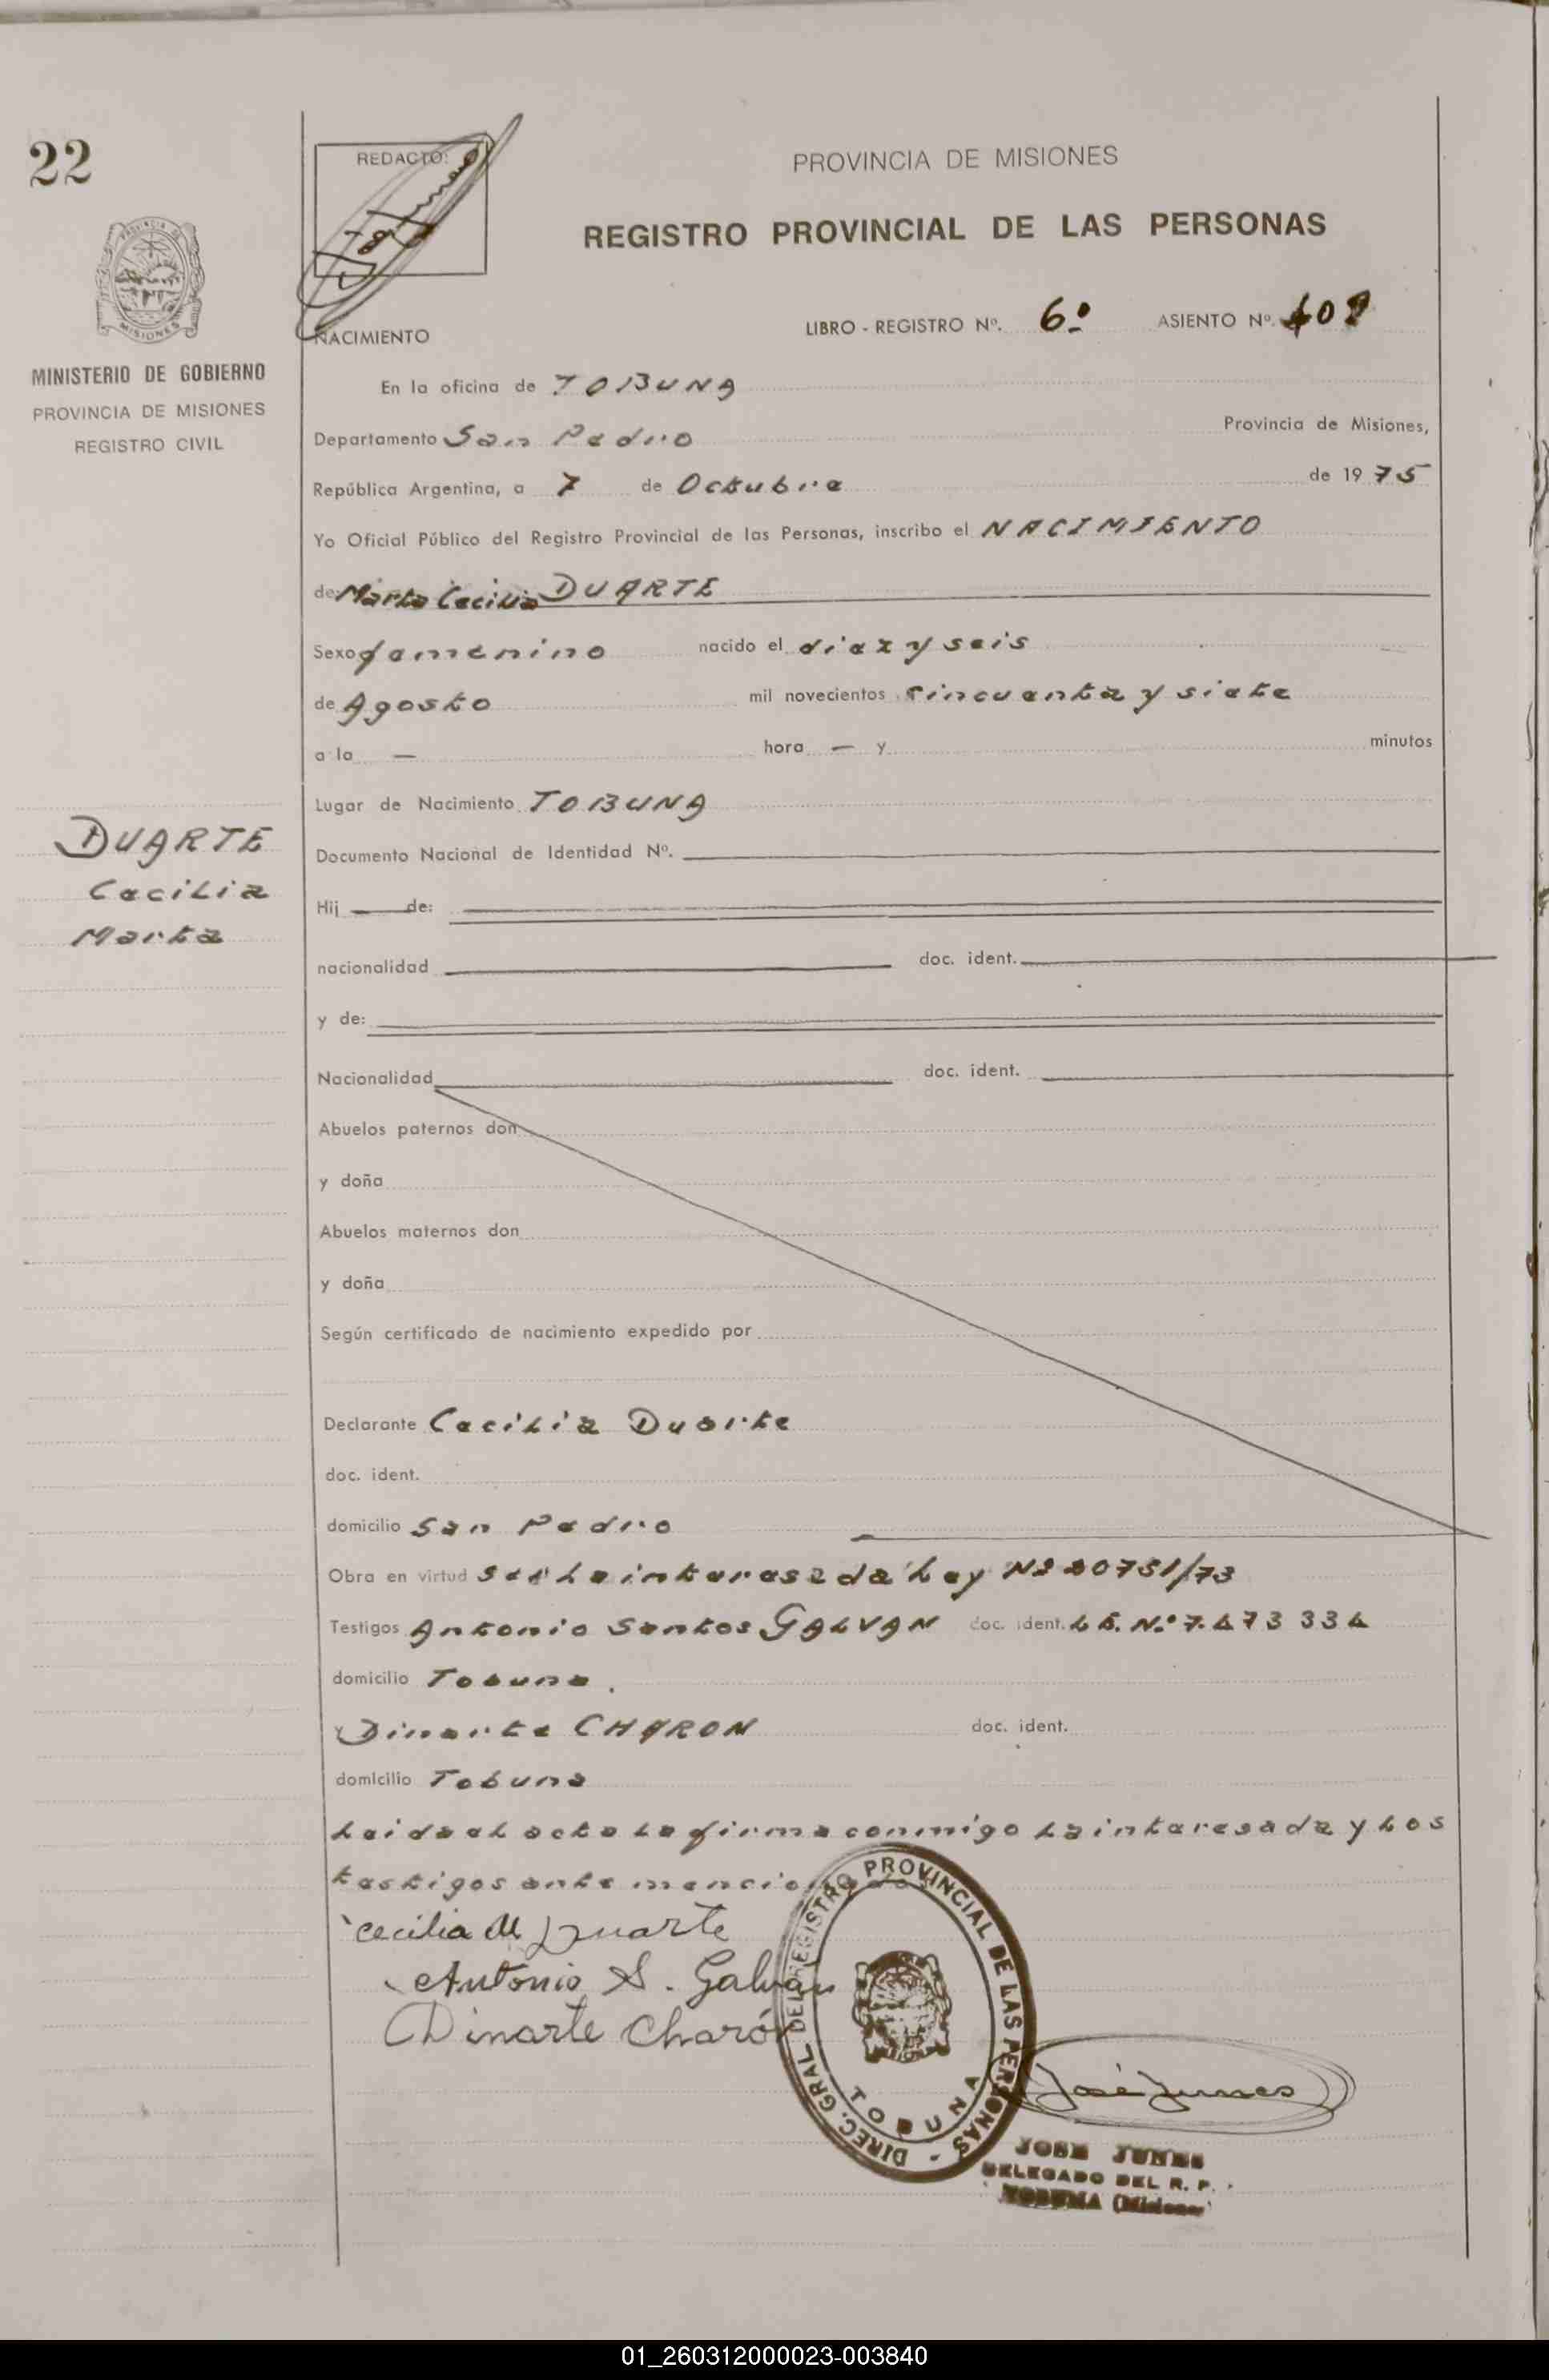 22
REDACTO:
PROVINCIA DE MISIONES
REGISTRO PROVINCIAL DE LAS PERSONAS
LIBRO - REGISTRO Nº. 6º ASIENTO Nº.
NACIMIENTO
MISIONES
MINISTERIO DE GOBIERNO
PROVINCIA DE MISIONES
REGISTRO CIVIL
En la oficina de TOBUNA
Departamento San Pedro Provincia de Misiones,
República Argentina, a 7 de Octubre de 1975
Yo Oficial Público del Registro Provincial de las Personas, inscribo el NACIMIENTO
de Marta Cecilia DUARTE
Sexo femenino nacido el diez y seis
de Agosto mil novecientos cincuenta y siete
a la — hora — y minutos
Lugar de Nacimiento TOBUNA
DUARTE
Cecilia
Marta
Documento Nacional de Identidad Nº.
Hij — de:
nacionalidad doc. ident.
y de:
Nacionalidad doc. ident.
Abuelos paternos don
y doña
Abuelos maternos don
y doña
Según certificado de nacimiento expedido por
Declarante Cecilia Duarte
doc. ident.
domicilio San Pedro
Obra en virtud ser la interesada Ley Nº 20751/73
Testigos Antonio Santos GALVAN doc. ident. L.E. Nº 7.473 334
domicilio Tobuna.
y Dinarte CHARON doc. ident.
domicilio Tobuna
Leida el acta la firma conmigo la interesada y los
testigos ante mencionados
Cecilia M Duarte
Antonio S. Galván
Dinarte Charón
DIREC. GRAL. DEL REGISTRO PROVINCIAL DE LAS PERSONAS -
TOBUNA
José Junes
JOSE JUNES
DELEGADO DEL R. P.
TOBUNA (Misiones)
01_260312000023-003840